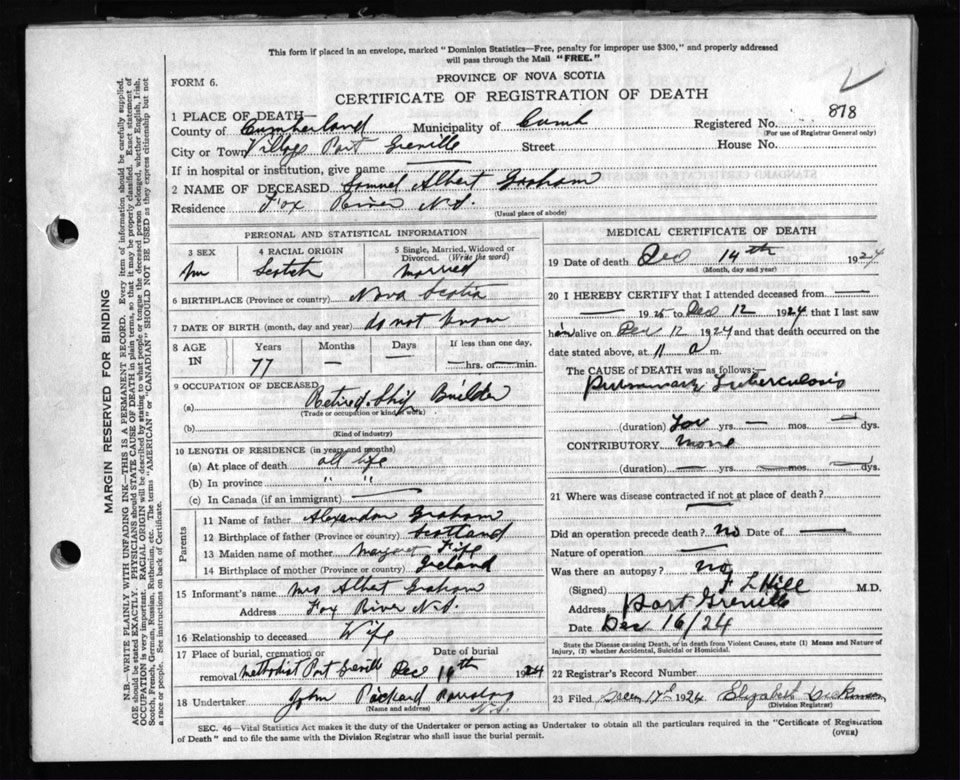 This form if placed in an envelope, marked "Dominion Statistics—Free, penalty for improper use $300," and properly addressed
will pass through the Mail "FREE."
PROVINCE OF NOVA SCOTIA
FORM 6.
CERTIFICATE OF REGISTRATION OF DEATH
1 PLACE OF DEATH—
County of Cumberland Municipality of Cumb Registered No. 878
(For use of Registrar General only)
City or Town Village Port Greville Street House No.
If in hospital or institution, give name
2 NAME OF DECEASED Samuel Albert Graham
Residence Fox River N.S.
(Usual place of abode)
PERSONAL AND STATISTICAL INFORMATION
3 SEX 4 RACIAL ORIGIN 5 Single, Married, Widowed or
Divorced. (Write the word)
m Scotch Married
6 BIRTHPLACE (Province or country) Nova Scotia
7 DATE OF BIRTH (month, day and year) do not know
8 AGE IN Years Months Days If less than one day,
77 — — hrs. or min.
9 OCCUPATION OF DECEASED
(a) Retired Ship Builder
(Trade or occupation or kind of work)
(b)
(Kind of industry)
10 LENGTH OF RESIDENCE (in years and months)
(a) At place of death all life
(b) In province " "
(c) In Canada (if an immigrant)
Parents
11 Name of father Graham
12 Birthplace of father (Province or country) Scotland
13 Maiden name of mother Margaret
14 Birthplace of mother (Province or country) Ireland
15 Informant's name Mrs Albert Graham
Address Fox River N.S.
16 Relationship to deceased Wife
17 Place of burial, cremation or Date of burial
removal Methodist Port Greville Dec 1924
18 Undertaker John Pickard N.S.
(Name and address)
MEDICAL CERTIFICATE OF DEATH
19 Date of death Dec 14th 1924
(Month, day and year)
20 I HEREBY CERTIFY that I attended deceased from —
— 19 to Dec 12 1924 that I last saw
him alive on Dec 12 1924 and that death occurred on the
date stated above, at 11 a m.
The CAUSE of DEATH was as follows:—
Pulmonary Tuberculosis
(duration) yrs. — mos. — dys.
CONTRIBUTORY none
(duration) — yrs. — mos. — dys.
21 Where was disease contracted if not at place of death?
Did an operation precede death? no Date of —
Nature of operation —
Was there an autopsy? no
(Signed) F L Hill M.D.
Address Port Greville
Date Dec 16/24
State the Disease causing Death, or in death from Violent Causes, state (1) Means and Nature of
Injury, (2) whether Accidental, Suicidal or Homicidal.
22 Registrar's Record Number
23 Filed 17th 1924 Elizabeth
(Division Registrar)
SEC. 46—Vital Statistics Act makes it the duty of the Undertaker or person acting as Undertaker to obtain all the particulars required in the "Certificate of Registration
of Death" and to file the same with the Division Registrar who shall issue the burial permit.
(OVER)
MARGIN RESERVED FOR BINDING
N.B.—WRITE PLAINLY WITH UNFADING INK—THIS IS A PERMANENT RECORD. Every item of information should be carefully supplied.
AGE should be stated EXACTLY. PHYSICIANS should STATE CAUSE OF DEATH in plain terms, so that it may be properly classified. Exact statement of
OCCUPATION is very important. RACIAL ORIGIN will be described by stating to what people or tongue the deceased person belonged, whether English, Irish,
Scotch, French, German, Russian, Ruthenian, etc. The terms "AMERICAN" or "CANADIAN" SHOULD NOT BE USED as they express citizenship but not
a race or people. See instructions on back of Certificate.